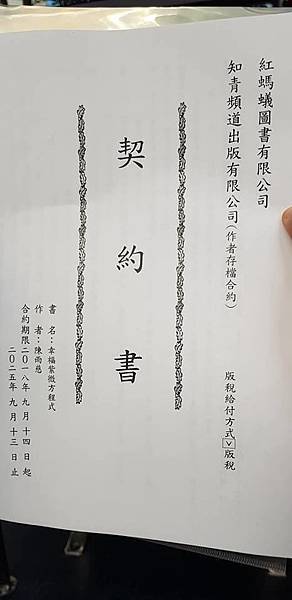 紅螞蟻圖書有限公司
知青頻道出版有限公司(作者存檔合約)
版稅給付方式☑版稅
契約書
書名：幸福紫微方程式
作者：陳雨慈
合約期限二〇一八年九月十四日起
二〇二五年九月十三日止